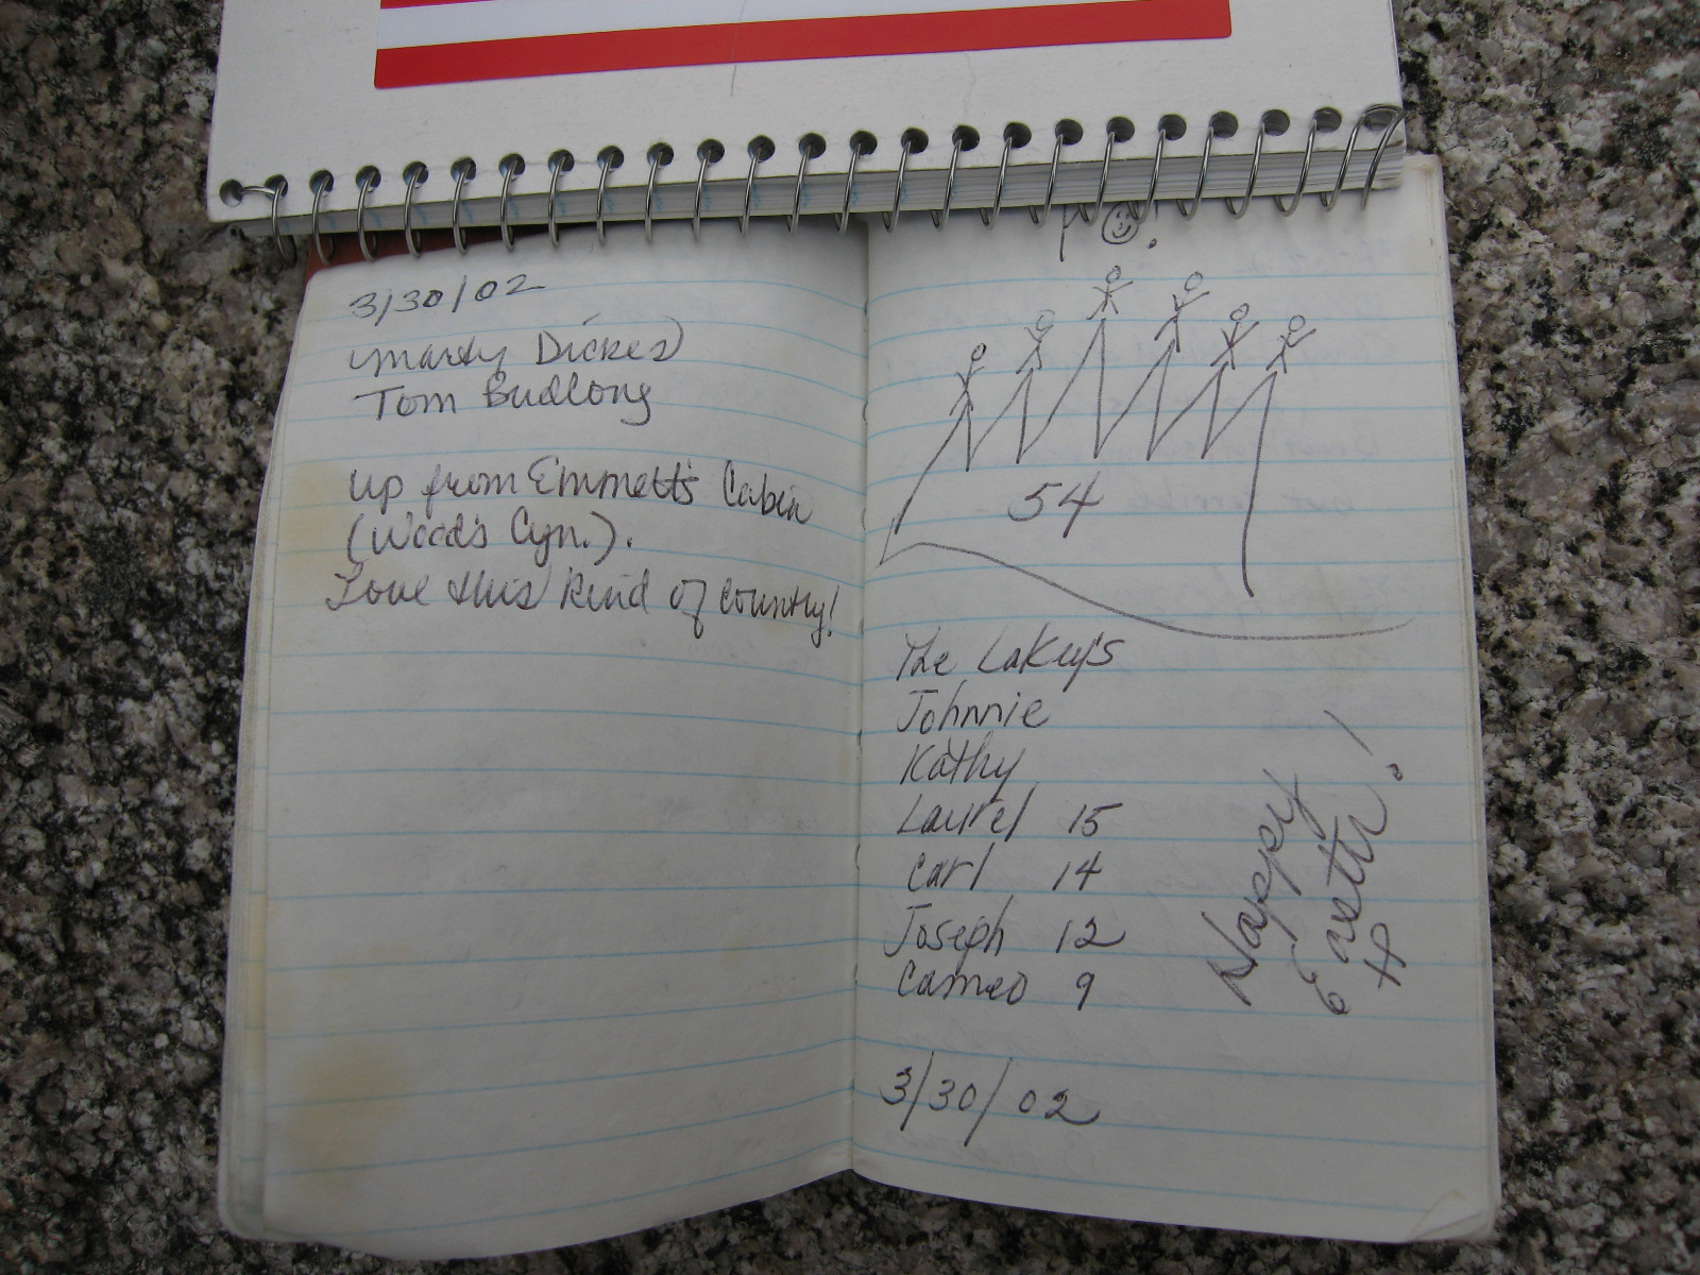 3/30/02
Marty Dickes
Tom Budlong
up from Emmett's Cabin
(Wood's Cyn.).
Love this kind of country!
54
The LaKey's
Johnnie
Kathy
Laurel 15
Carl 14
Joseph 12
Cameo 9
Happy
Easter!
3/30/02